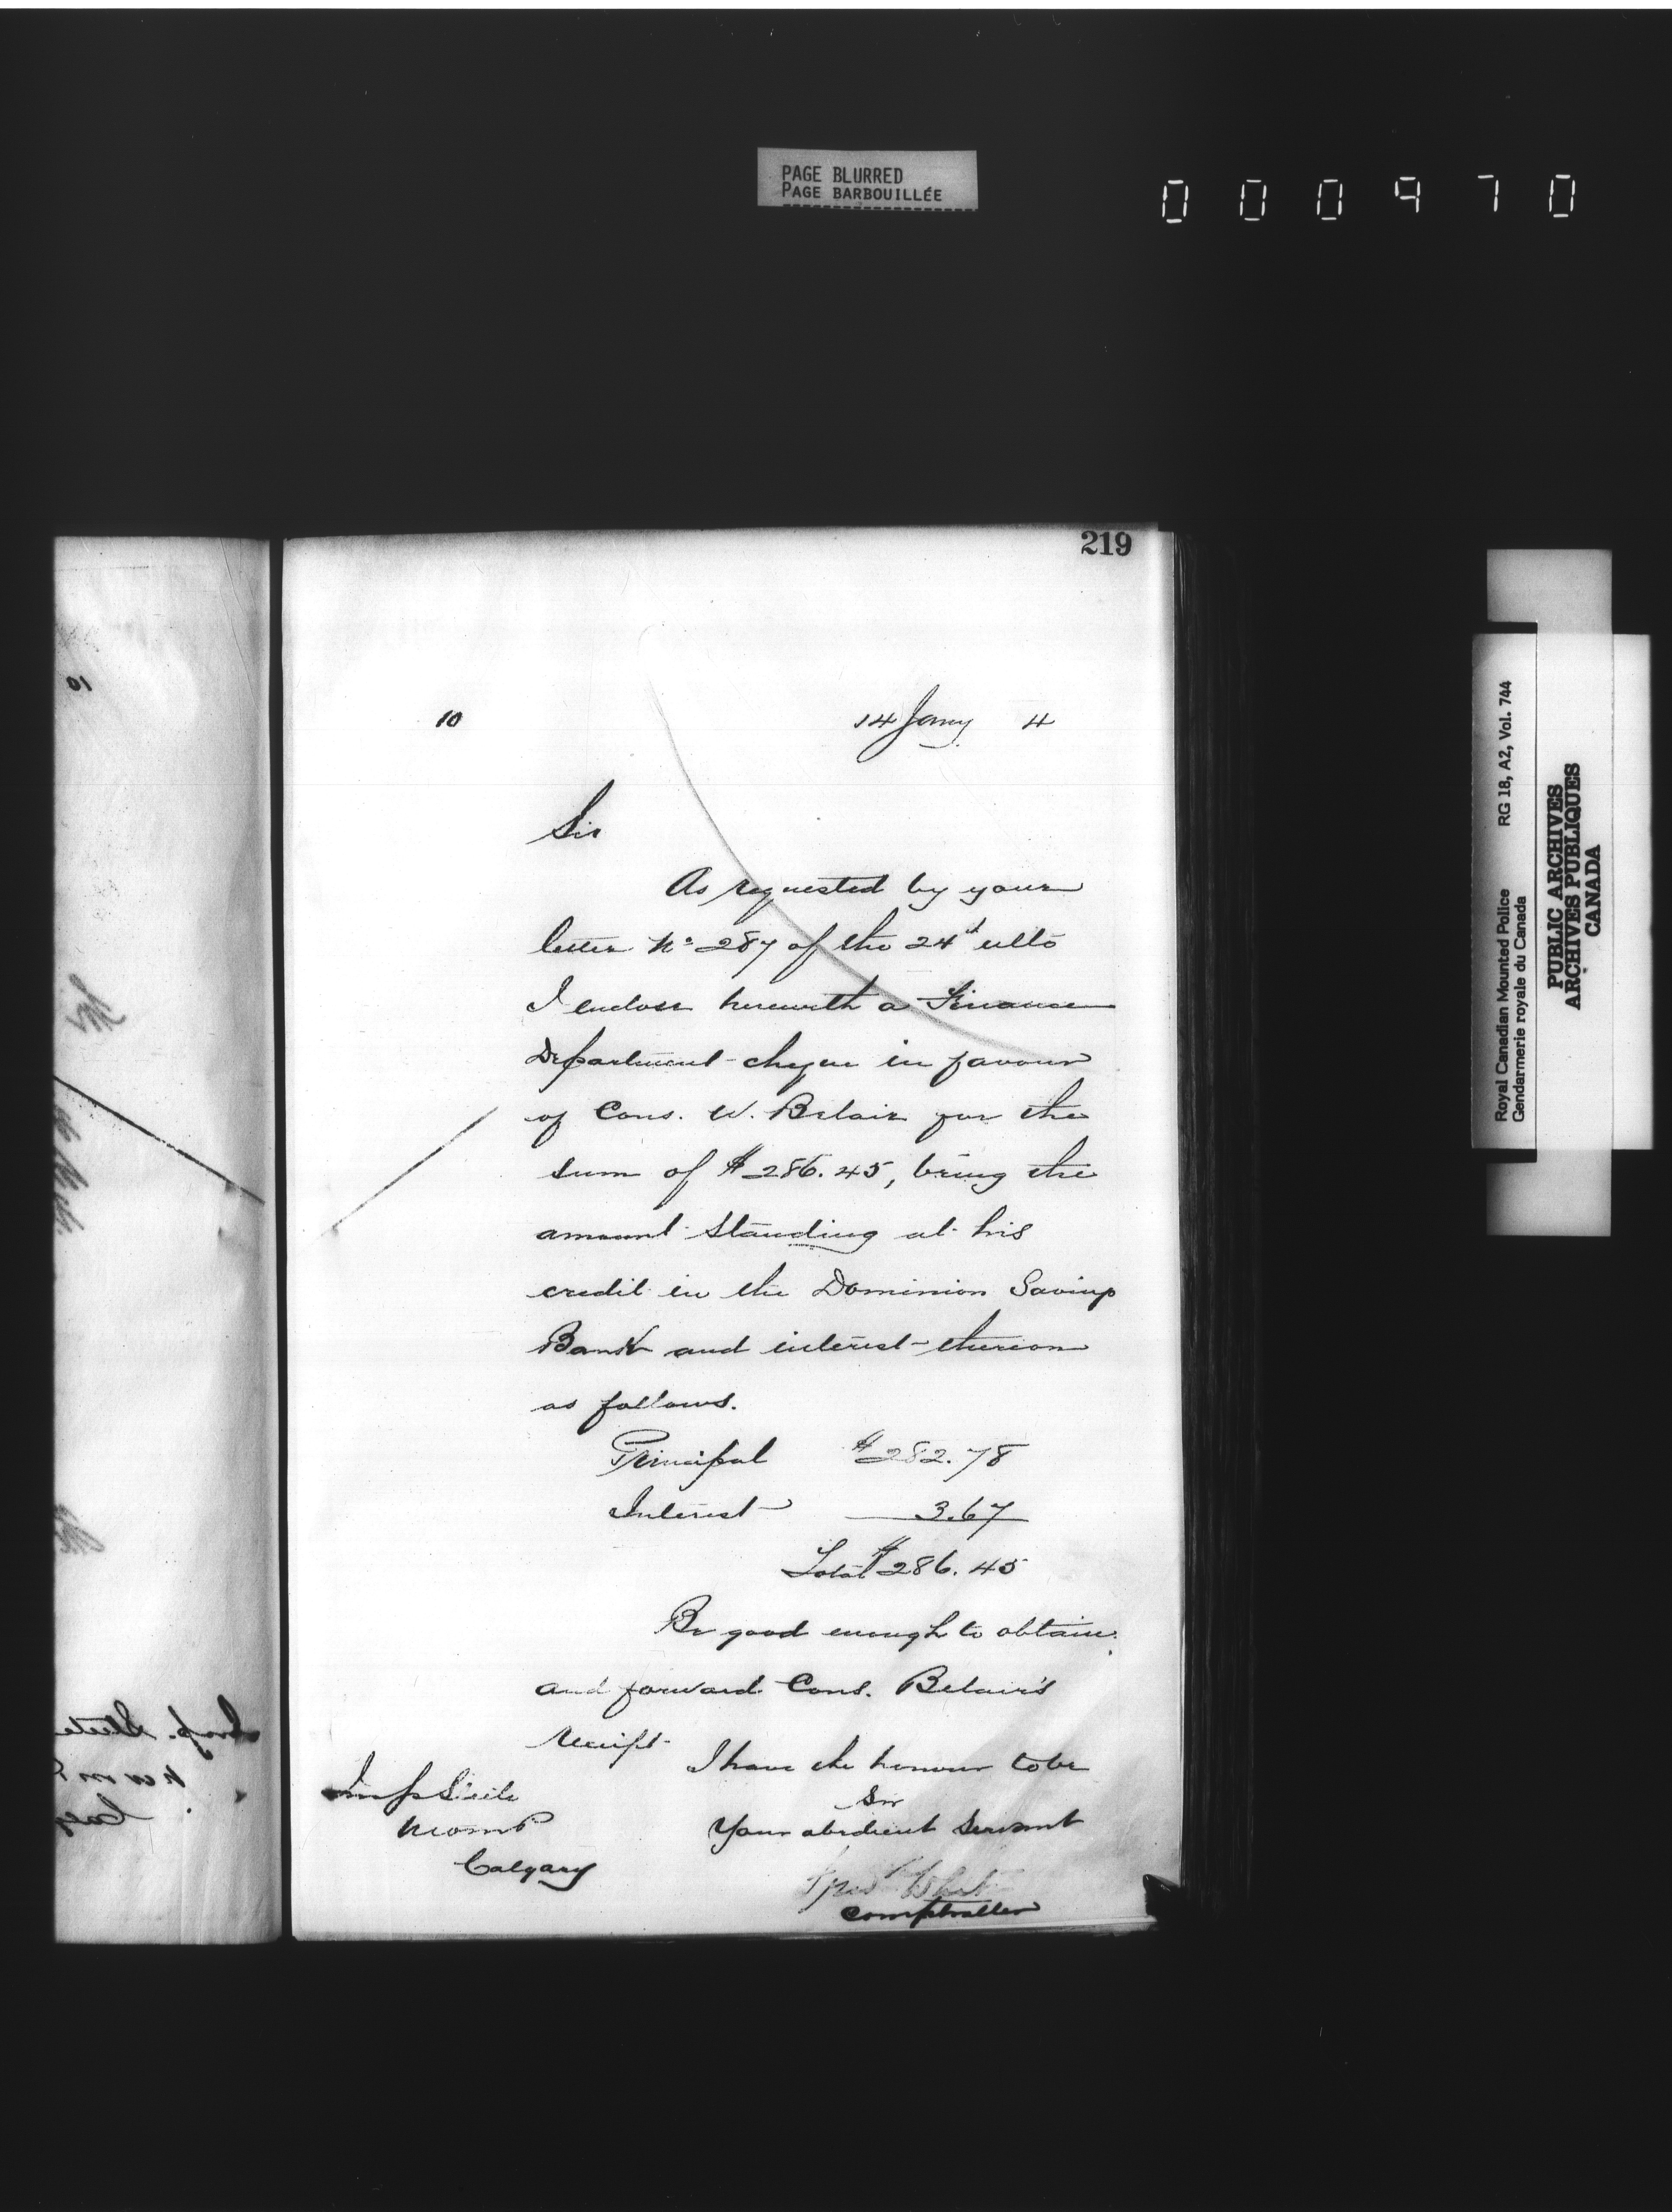 PAGE BLURRED
PAGE BARBOUILLÉE
000970
219
10 14 Jany 4
Sir
As requested by your
letter No 287 of the 24th ulto
I enclose herewith a Finance
Department cheque in favour
of Cons. W. Belair for the
sum of $286.45, being the
amount standing at his
credit in the Dominion Savings
Bank and interest thereon
as follows.
Principal $282.78
Interest 3.67
Total $286.45
Be good enough to obtain
and forward Cons. Belair's
receipt.
I have the honour to be
Sir
Your obedient Servant
Fred White
Comptroller
Insp Steele
NWMP
Calgary
Royal Canadian Mounted Police RG 18, A2, Vol. 744
Gendarmerie royale du Canada
PUBLIC ARCHIVES
ARCHIVES PUBLIQUES
CANADA